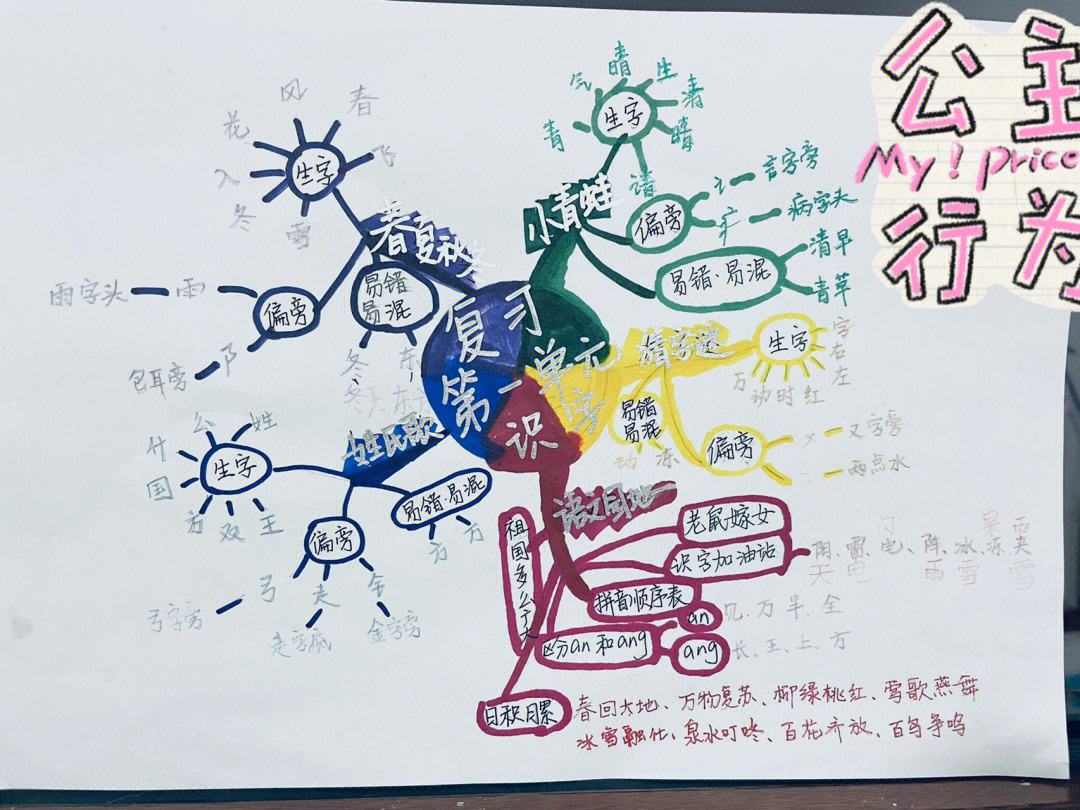 公主
My! price
行为
复习
第一单元
识字
春夏秋冬
生字
入
花
风
春
飞
冬
雪
偏旁
雨
雨字头
阝
包耳旁
易错
易混
冬
东
冬天
东
姓氏歌
生字
什
么
姓
国
方
双
王
偏旁
弓
弓字旁
走
走字底
金字旁
易错·易混
方
万
小青蛙
生字
青
气
晴
生
清
睛
请
偏旁
讠
言字旁
疒
病字头
易错·易混
清早
青草
猜字谜
生字
字
右
左
红
时
动
万
易错
易混
动
冻
偏旁
又字旁
冫
两点水
语文园地一
祖国多么广大
老鼠嫁女
识字加油站
阴天
雷电
闪电
阵雨
冰雪
暴
冻
雨夹雪
拼音顺序表
区分an和ang
an
几、万、半、全
ang
长、王、上、方
日积月累
春回大地、万物复苏、柳绿桃红、莺歌燕舞
冰雪融化、泉水叮咚、百花齐放、百鸟争鸣